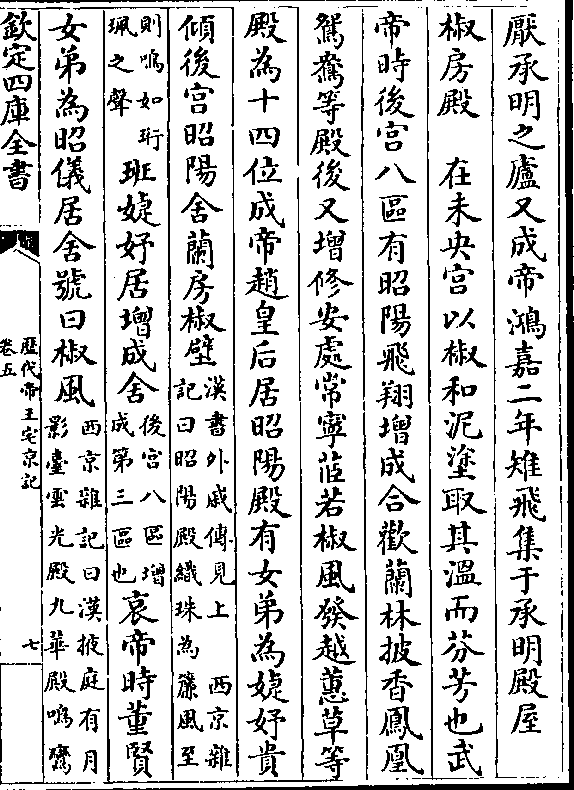 厭承明之廬又成帝鴻嘉二年雉飛集于承明殿屋
椒房殿　在未央宮以椒和泥塗取其溫而芬芳也武
帝時後宮八區有昭陽飛翔增成合歡蘭林披香鳳凰
鴛鸞等殿後又增修安處常寧茝若椒風發越蕙草等
殿為十四位成帝趙皇后居昭陽殿有女弟為婕妤貴
傾後宮昭陽舍蘭房椒壁
漢書外戚傳見上　西京雜
記曰昭陽殿織珠為簾風至
則鳴如珩
珮之聲
班婕妤居增成舍
後宮八區增
成第三區也
哀帝時董賢
女弟為昭儀居舍號曰椒風
西京雜記曰漢掖庭有月
影臺雲光殿九華殿鳴鸞
欽定四庫全書
歷代帝王宅京記
卷五
七